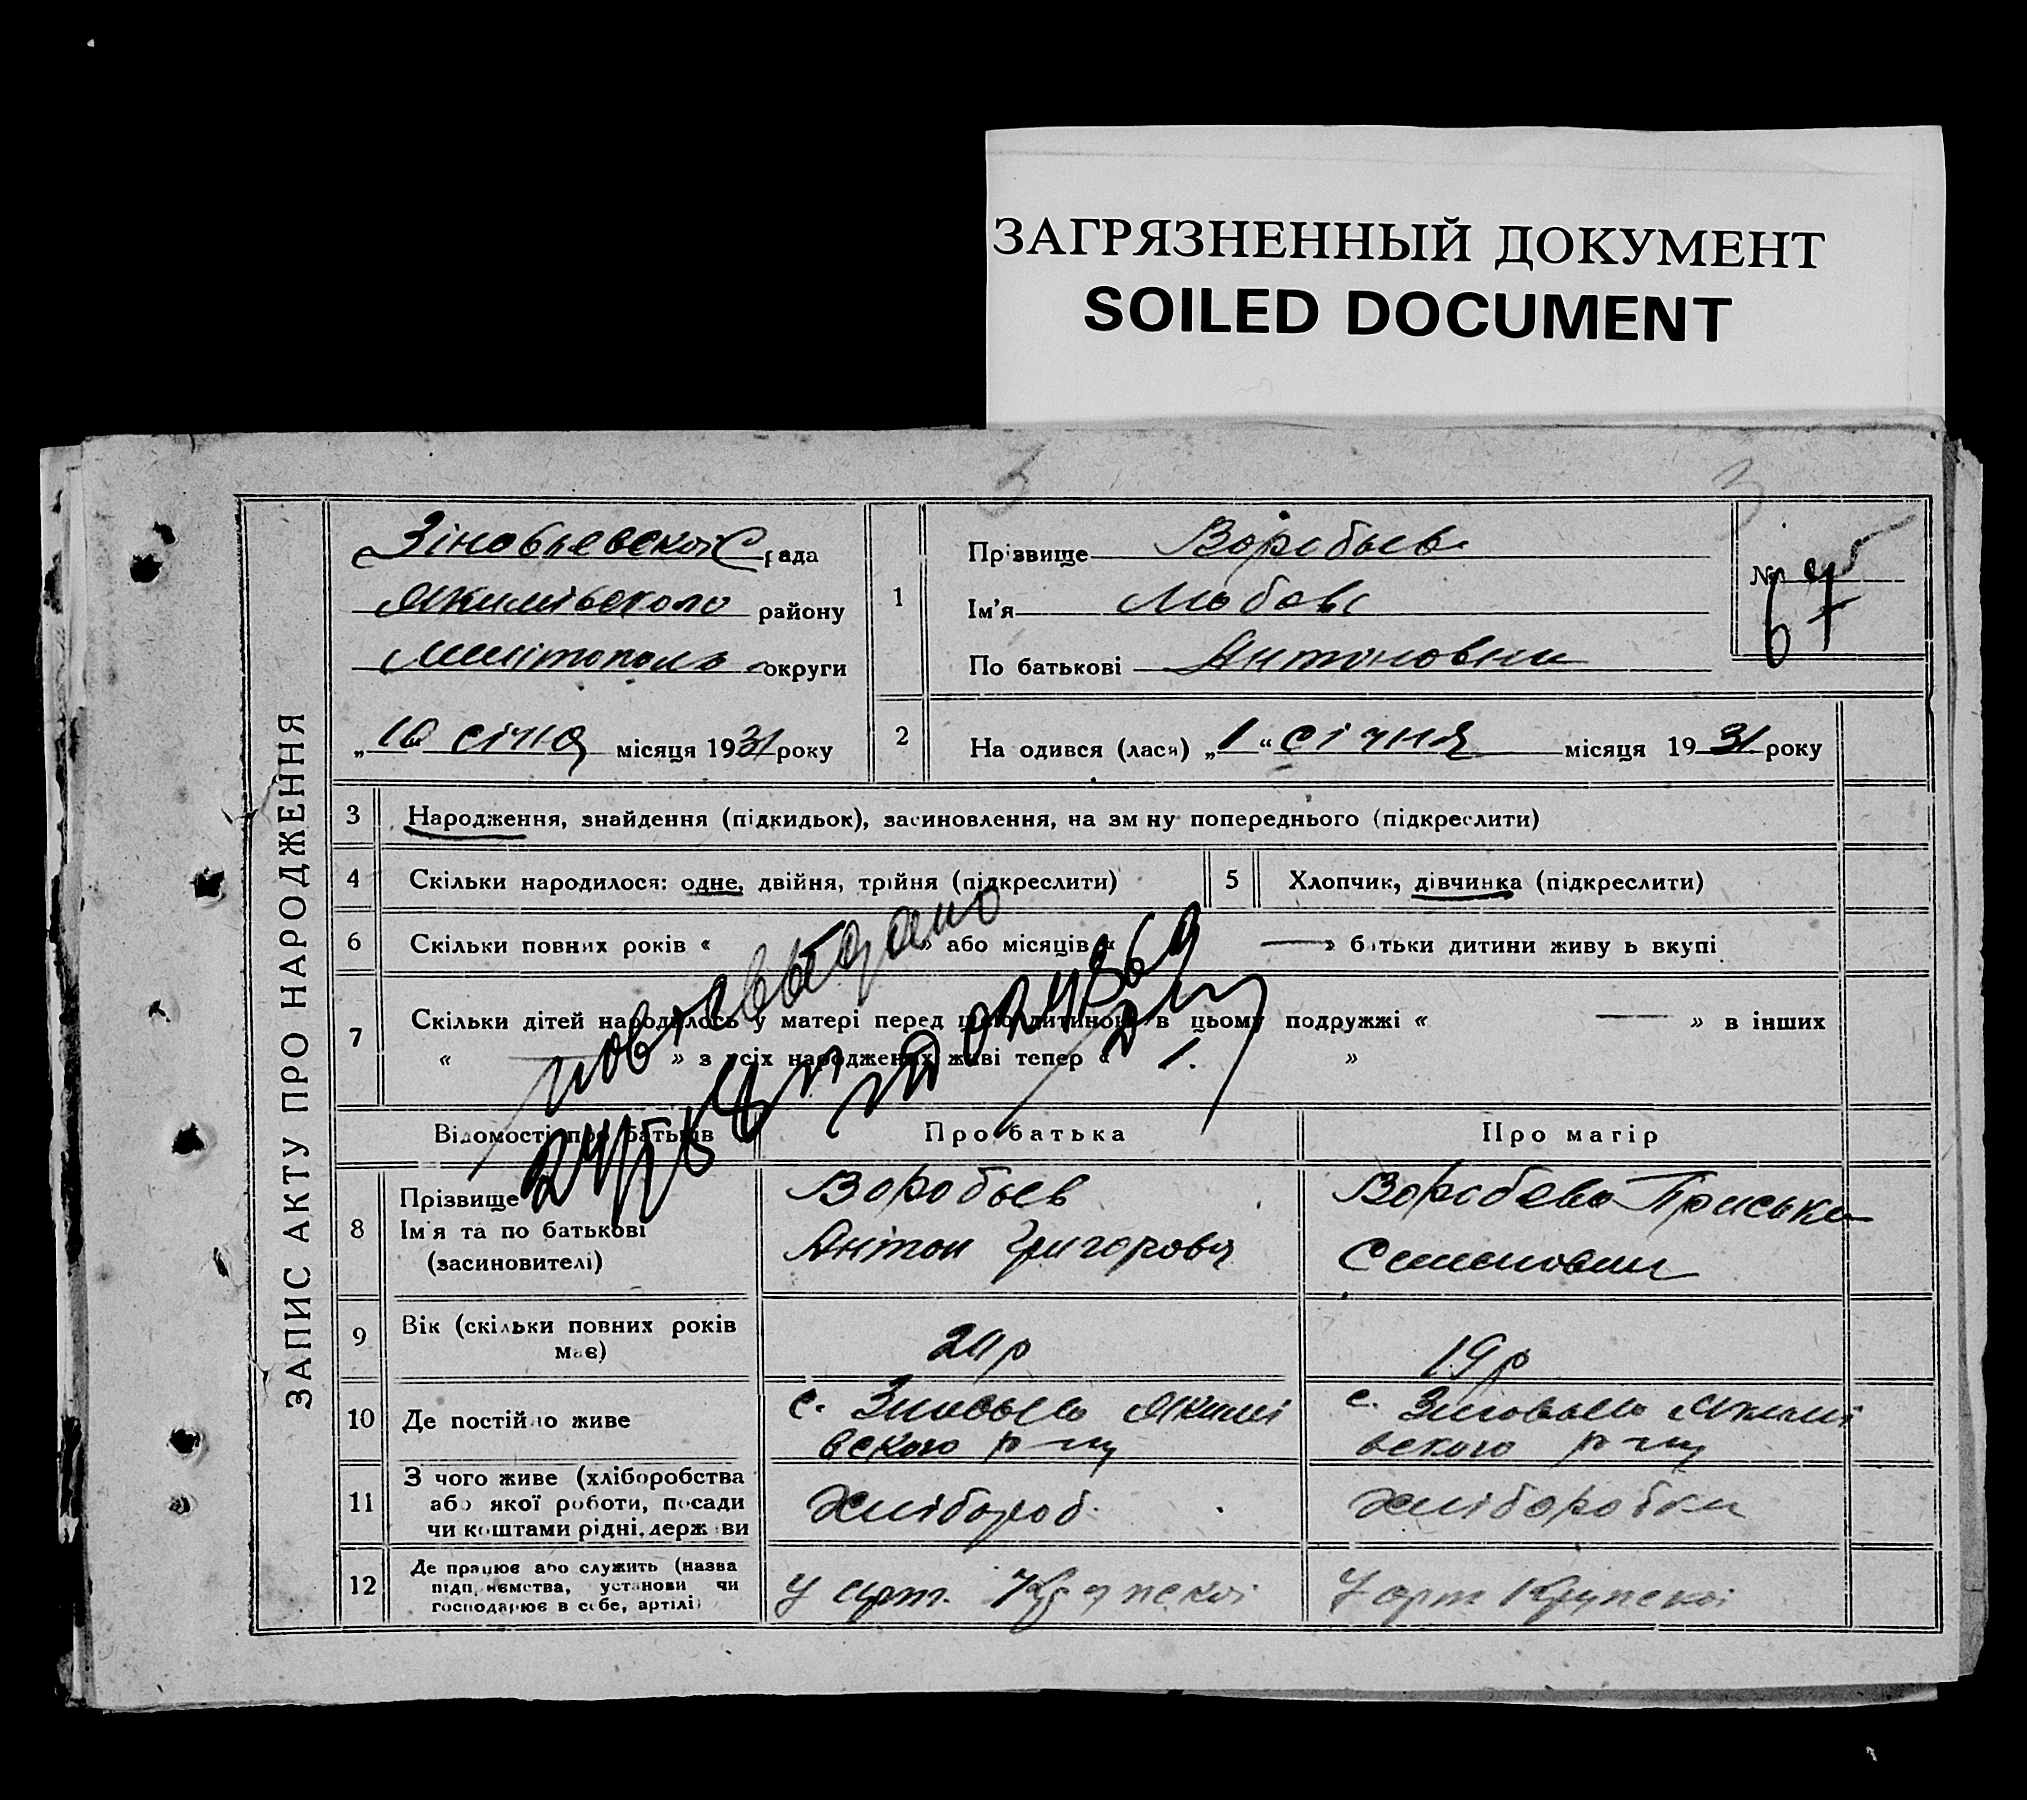 ЗАГРЯЗНЕННЫЙ ДОКУМЕНТ
SOILED DOCUMENT
3 3
ЗАПИС АКТУ ПРО НАРОДЖЕННЯ
Зіновьевської С рада
Якимівського району
округи
„10 січня місяця 1931 року
1
Прізвище Воробьев
Ім'я Любовь
По батькові Антоновна
№ 67
2 На одився (лася) „1“ січня місяця 1931 року
3 Народження, знайдення (підкидьок), засиновлення, на зм ну попереднього (підкреслити)
4 Скільки народилося: одне, двійня, трійня (підкреслити)
5 Хлопчик, дівчинка (підкреслити)
6 Скільки повних років « » або місяців « — » батьки дитини живу ь вкупі
7 Скільки дітей народилось у матері перед цією дитиною в цьому подружжі « — » в інших
« — » з усіх народжених живі тепер « 1. »
Відомості про батьків Про батька Про матір
8 Прізвище
Ім'я та по батькові
(засиновителі)
Воробьев
Антон Григорович
Воробева Приська
Семеновна
9 Вік (скільки повних років
має)
19 р
10 Де постійно живе
с. Зиновьево Якимі
вского р-ну
с. Зиновьево Якимі
вского р-ну
11 З чого живе (хліборобства
або якої роботи, посади
чи коштами рідні, держ ви
Хлібороб
Хліборобка
12 Де працює або служить (назва
підп иємства, установи чи
господарює в себе, артілі)
У арт. Крупської
У арт Крупской